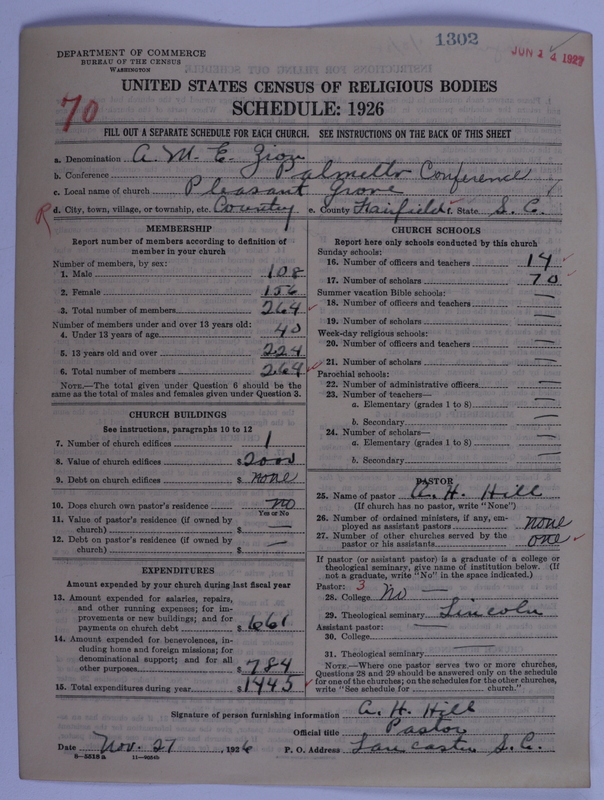 1302
JUN 14 1927
DEPARTMENT OF COMMERCE
BUREAU OF THE CENSUS
WASHINGTON
UNITED STATES CENSUS OF RELIGIOUS BODIES
SCHEDULE: 1926
70
FILL OUT A SEPARATE SCHEDULE FOR EACH CHURCH. SEE INSTRUCTIONS ON THE BACK OF THIS SHEET
a. Denomination A. M. E. Zion
b. Conference Palmetto Conference
c. Local name of church Pleasant Grove
R d. City, town, village, or township, etc. Country e. County Fairfield f. State S. C.
MEMBERSHIP
Report number of members according to definition of member in your church
Number of members, by sex:
1. Male 108
2. Female 156
3. Total number of members 264
Number of members under and over 13 years old:
4. Under 13 years of age 40
5. 13 years old and over 224
6. Total number of members 264
NOTE.—The total given under Question 6 should be the
same as the total of males and females given under Question 3.
CHURCH BUILDINGS
See instructions, paragraphs 10 to 12
7. Number of church edifices 1
8. Value of church edifices $2000
9. Debt on church edifices $ none
10. Does church own pastor's residence no
Yes or No
11. Value of pastor's residence (if owned by
church) $ —
12. Debt on pastor's residence (if owned by
church) $ —
EXPENDITURES
Amount expended by your church during last fiscal year
13. Amount expended for salaries, repairs,
and other running expenses; for im-
provements or new buildings; and for
payments on church debt $ 661
14. Amount expended for benevolences, in-
cluding home and foreign missions; for
denominational support; and for all
other purposes $ 784
15. Total expenditures during year $1445
CHURCH SCHOOLS
Report here only schools conducted by this church
Sunday schools:
16. Number of officers and teachers 14
17. Number of scholars 70
Summer vacation Bible schools:
18. Number of officers and teachers —
19. Number of scholars —
Week-day religious schools:
20. Number of officers and teachers —
21. Number of scholars —
Parochial schools:
22. Number of administrative officers —
23. Number of teachers—
a. Elementary (grades 1 to 8) —
b. Secondary —
24. Number of scholars—
a. Elementary (grades 1 to 8) —
b. Secondary —
PASTOR
25. Name of pastor A. H. Hill
(If church has no pastor, write "None")
26. Number of ordained ministers, if any, em-
ployed as assistant pastors none
27. Number of other churches served by the
pastor or his assistants one
If pastor (or assistant pastor) is a graduate of a college or
theological seminary, give name of institution below. (If
not a graduate, write "No" in the space indicated.)
Pastor: 3
28. College No —
29. Theological seminary Lincoln
Assistant pastor: —
30. College
31. Theological seminary —
NOTE.—Where one pastor serves two or more churches,
Questions 28 and 29 should be answered only on the schedule
for one of the churches; on the schedules for the other churches,
write "See schedule for church."
Signature of person furnishing information A. H. Hill
Official title Pastor
Date Nov. 27, 1926 P. O. Address Lancaster S. C.
8-5518 a 11-9094b